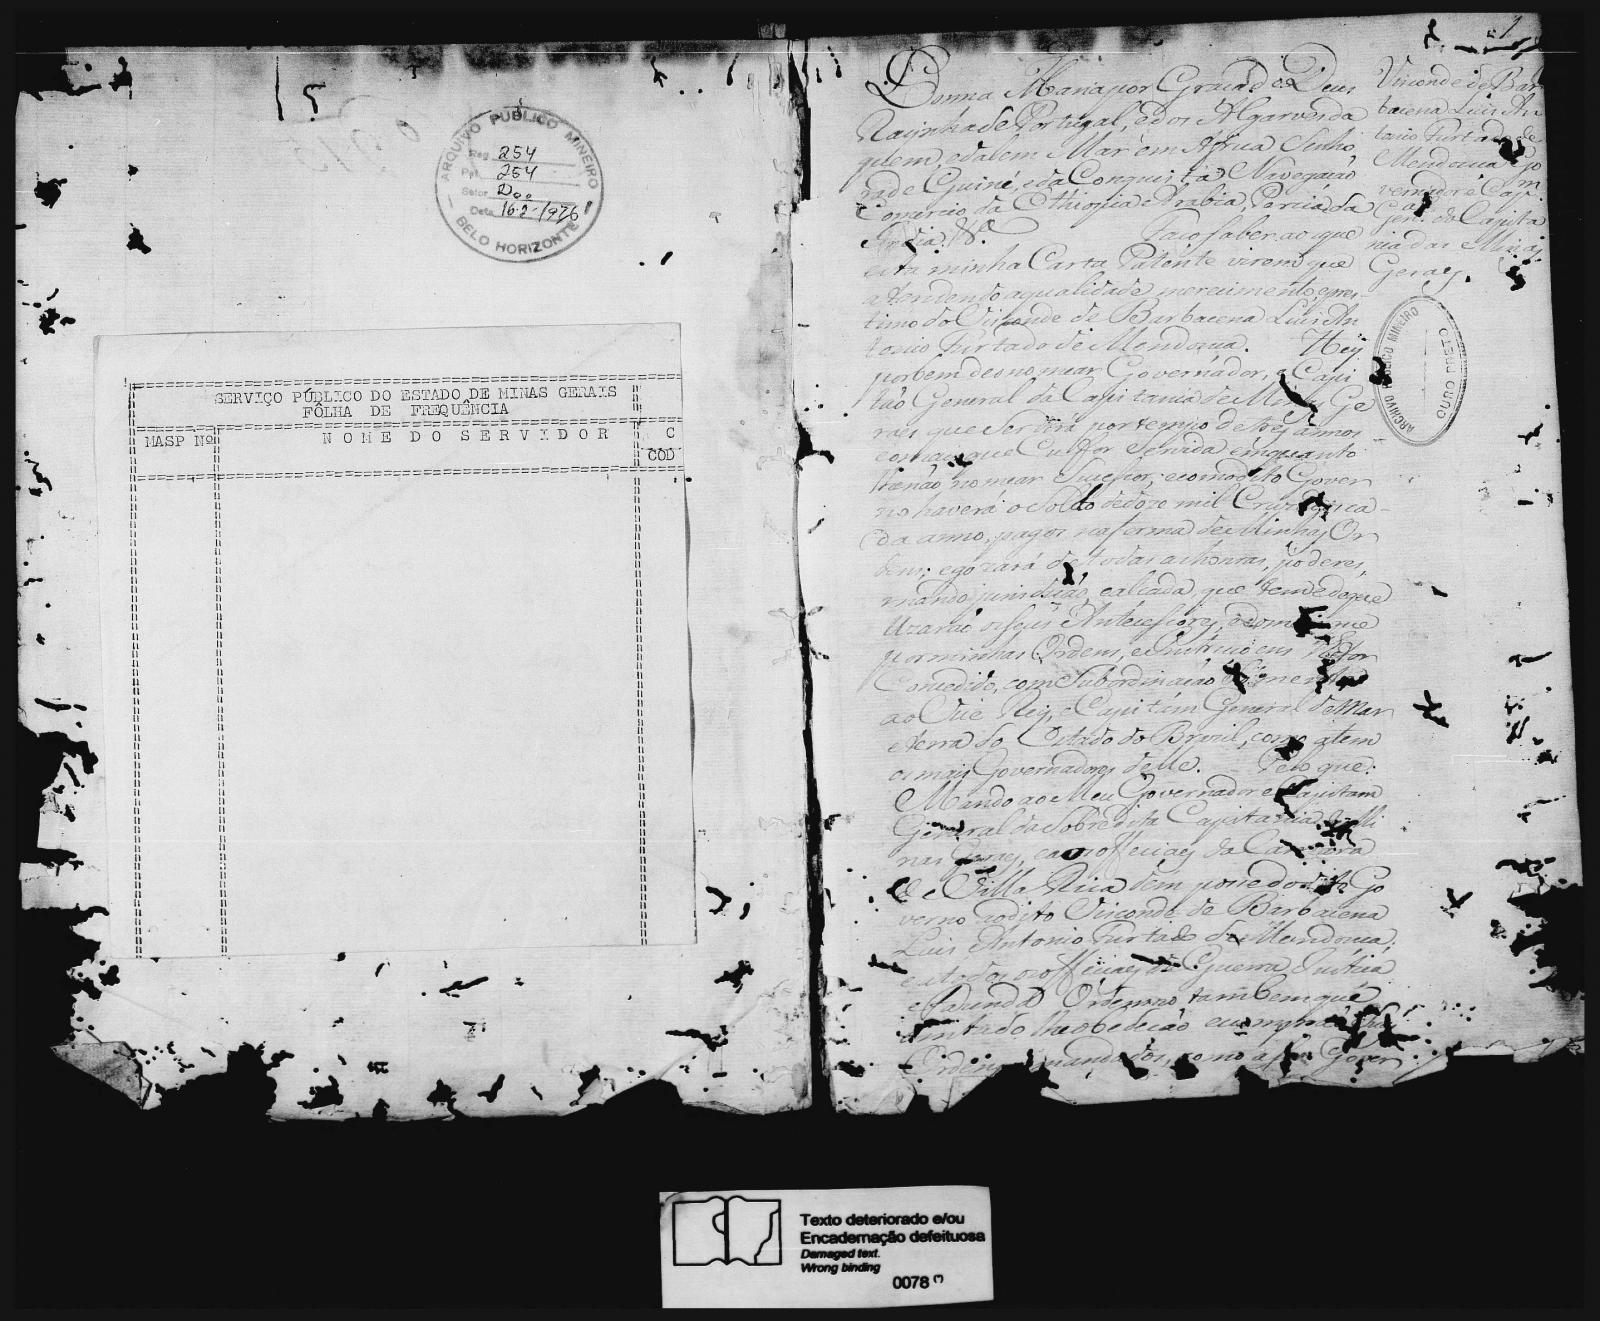 ARQUIVO PÚBLICO MINEIRO
Reg. 254
254
Setor Doc
Data 16-2-1976
BELO HORIZONTE
SERVIÇO PÚBLICO DO ESTADO DE MINAS GERAIS
FÔLHA DE FREQUÊNCIA
MASP Nº NOME DO SERVIDOR C
COD
1
Donna Maria por Graça de Deos
Raynha de Portugal, e dos Algarves da
quem, e dalem Mar em Africa Senho
ra de Guiné, e da Conquista Navegaçaõ
Comercio da Ethiopia Arabia, Percia, da
India &ª. Faço saber ao que
esta minha Carta Patente virem que
atendendo a qualidade merecimento, e pres-
timo do Visconde de Barbacena Luis An
tonio Furtado de Mendonca. Hey
por bem de o nomear Governador, e Capi
taõ General da Capitania de Minas Ge
raes que servirá por tempo de tres annos
e o mais que Eu for Servida emquanto
lhe naõ nomear Sucessor, e com o dito Gover
no haverá o Soldo de doze mil Cruzados ca-
da anno, pagos na forma de Minhas Or
dens; e gozará de todas as honras, poderes,
mando, jurisdiçaõ, e alçada, que tem e de que
uzaraõ os seus Antecessores, e do mais que
por minhas Ordens, e Instruçoens lhe for
Concedido, com Subordinaçaõ
ao Vice Rey, e Capitam General de Mar
e terra do Estado do Brazil, como a tem
os mais Governadores delle. Pelo que:
Mando ao Meu Governador e Capitam
General da Sobredita Capitania de Mi
nas Geraes, e aos officiaes da Camara
de Villa Rica dem posse do dito Go
verno ao dito Visconde de Barbacena
Luis Antonio Furtado de Mendonca;
e a todos os officiaes de Guerra, Justiça
e fazenda Ordeno tambem que
em tudo lhe obedeçaõ e cumpraõ
Ordens mandados, como a seu Gover
Visconde de Bar
bacena Luis An
tonio Furtado de
Mendonca Go
vernador e Capᵐ
Genᵃˡ da Capita
nia das Minas
Geraes.
ARCHIVO PUBLICO MINEIRO
OURO PRETO
Texto deteriorado e/ou
Encadernação defeituosa
Damaged text.
Wrong binding
0078 (*)